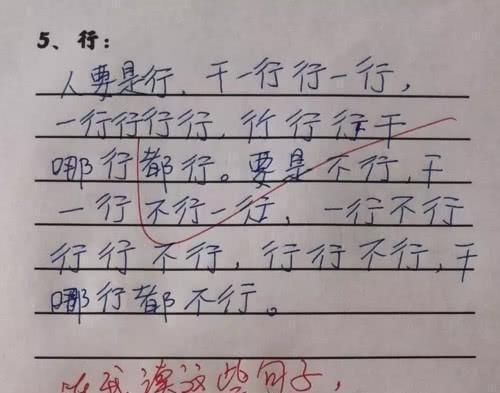 5、行：
人要是行、干一行行一行，
一行行行行，行行行干
哪行都行。要是不行，干
一行不行一行，一行不行
行行不行，行行不行，干
哪行都不行。
我读这些句子，